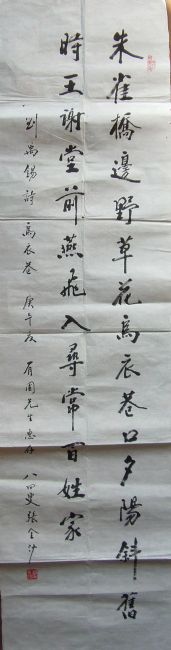 朱雀橋邊野草花烏衣巷口夕陽斜舊
時王謝堂前燕飛入尋常百姓家
劉禹錫詩烏衣巷 庚午夏 有国先生惠存 八四叟張金沙